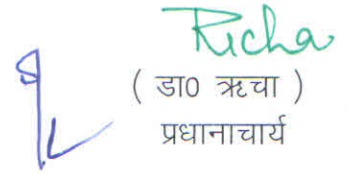 Richa
( डा0 ऋचा )
प्रधानाचार्य